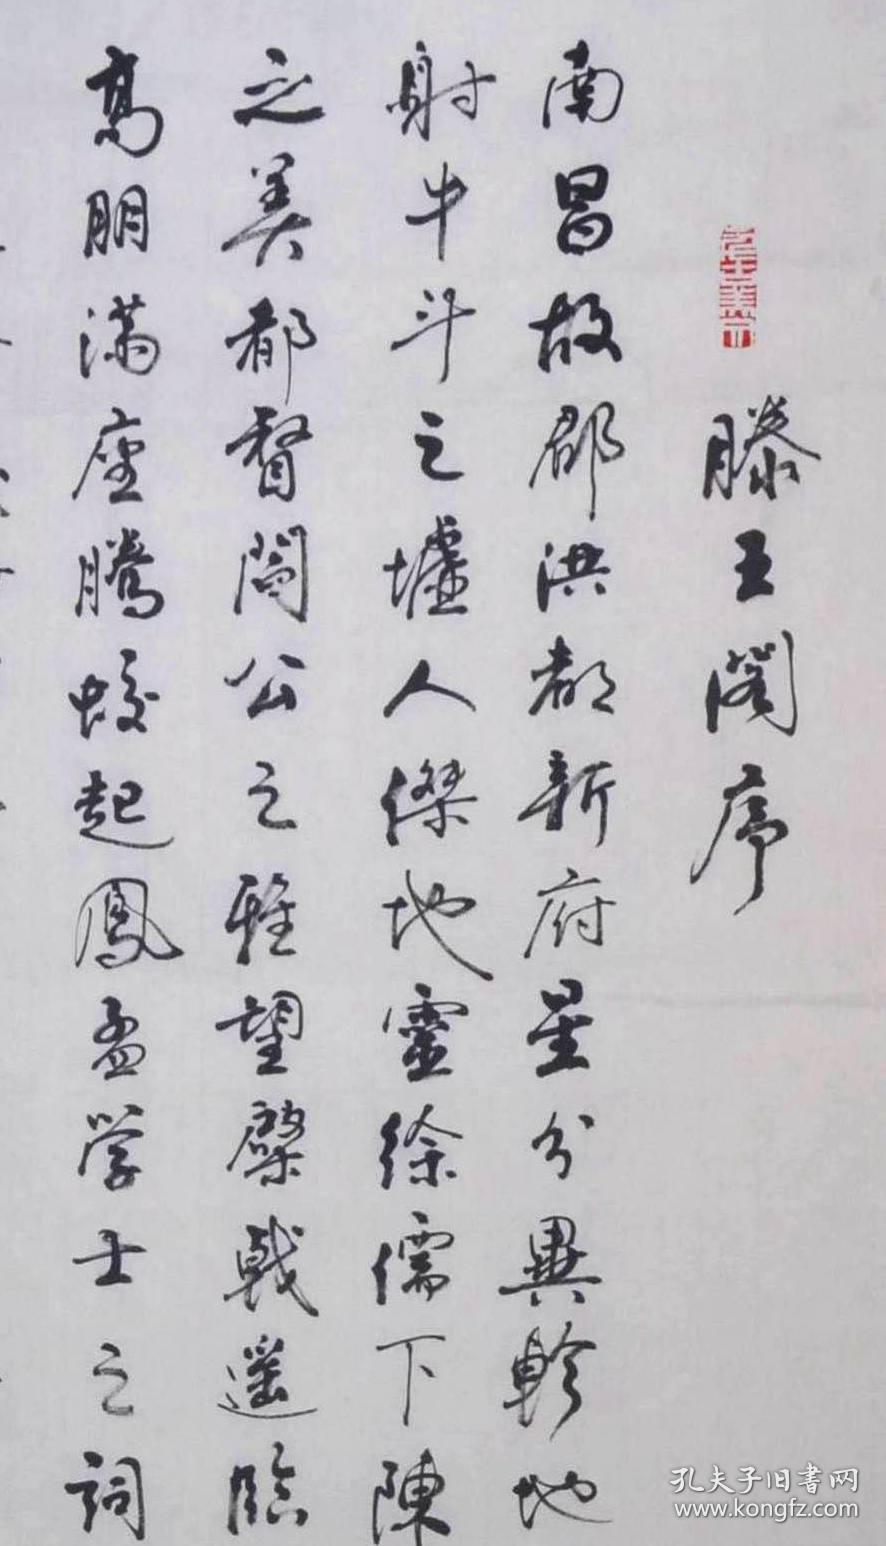 滕王阁序
南昌故郡洪都新府星分異軫地
射牛斗之墟人傑地靈徐儒下陳
之美都督閻公之雅望棨戟遥臨
髙朋滿座騰蛟起鳳孟学士之詞
孔夫子旧書网
www.kongfz.com